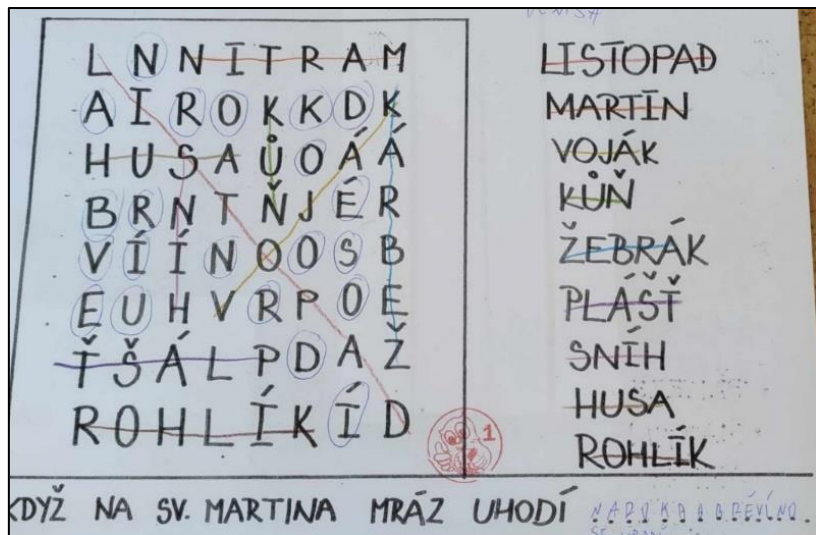 DENISA
L N N I T R A M
A I R O K K D K
H U S A Ů O Á Á
B R N T Ň J É R
V Í Í N O O S B
E U H V R P O E
Ť Š Á L P D A Ž
R O H L Í K Í D
LISTOPAD
MARTIN
VOJÁK
KŮŇ
ŽEBRÁK
PLÁŠŤ
SNÍH
HUSA
ROHLÍK
1
KDYŽ NA SV. MARTINA MRÁZ UHODÍ